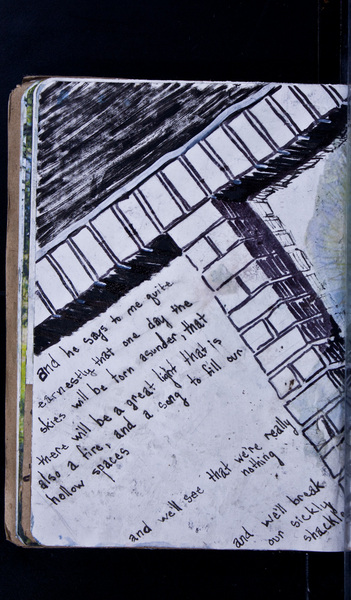 and he says to me quite
earnestly that one day the
skies will be torn asunder, that
there will be a great light that is
also a fire, and a song to fill our
hollow spaces
and we'll see that we're really
nothing
and we'll break
our sickly
shackle